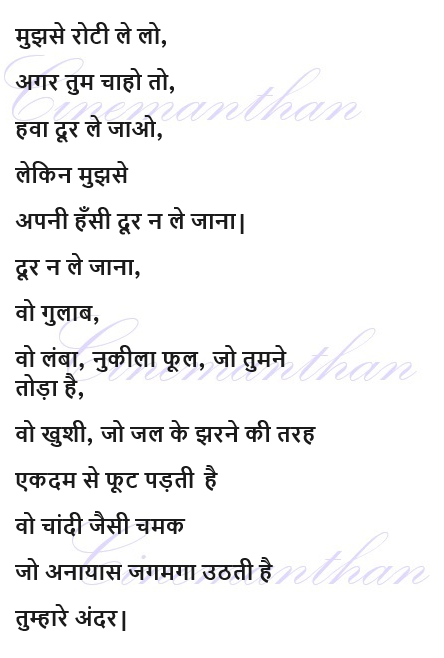 मुझसे रोटी ले लो,
अगर तुम चाहो तो,
Cinemanthan
हवा दूर ले जाओ,
लेकिन मुझसे
अपनी हँसी दूर न ले जाना|
दूर न ले जाना,
वो गुलाब,
वो लंबा, नुकीला फूल, जो तुमने
Cinemanthan
तोड़ा है,
वो खुशी, जो जल के झरने की तरह
एकदम से फूट पड़ती है
वो चांदी जैसी चमक
जो अनायास जगमगा उठती है
Cinemanthan
तुम्हारे अंदर|